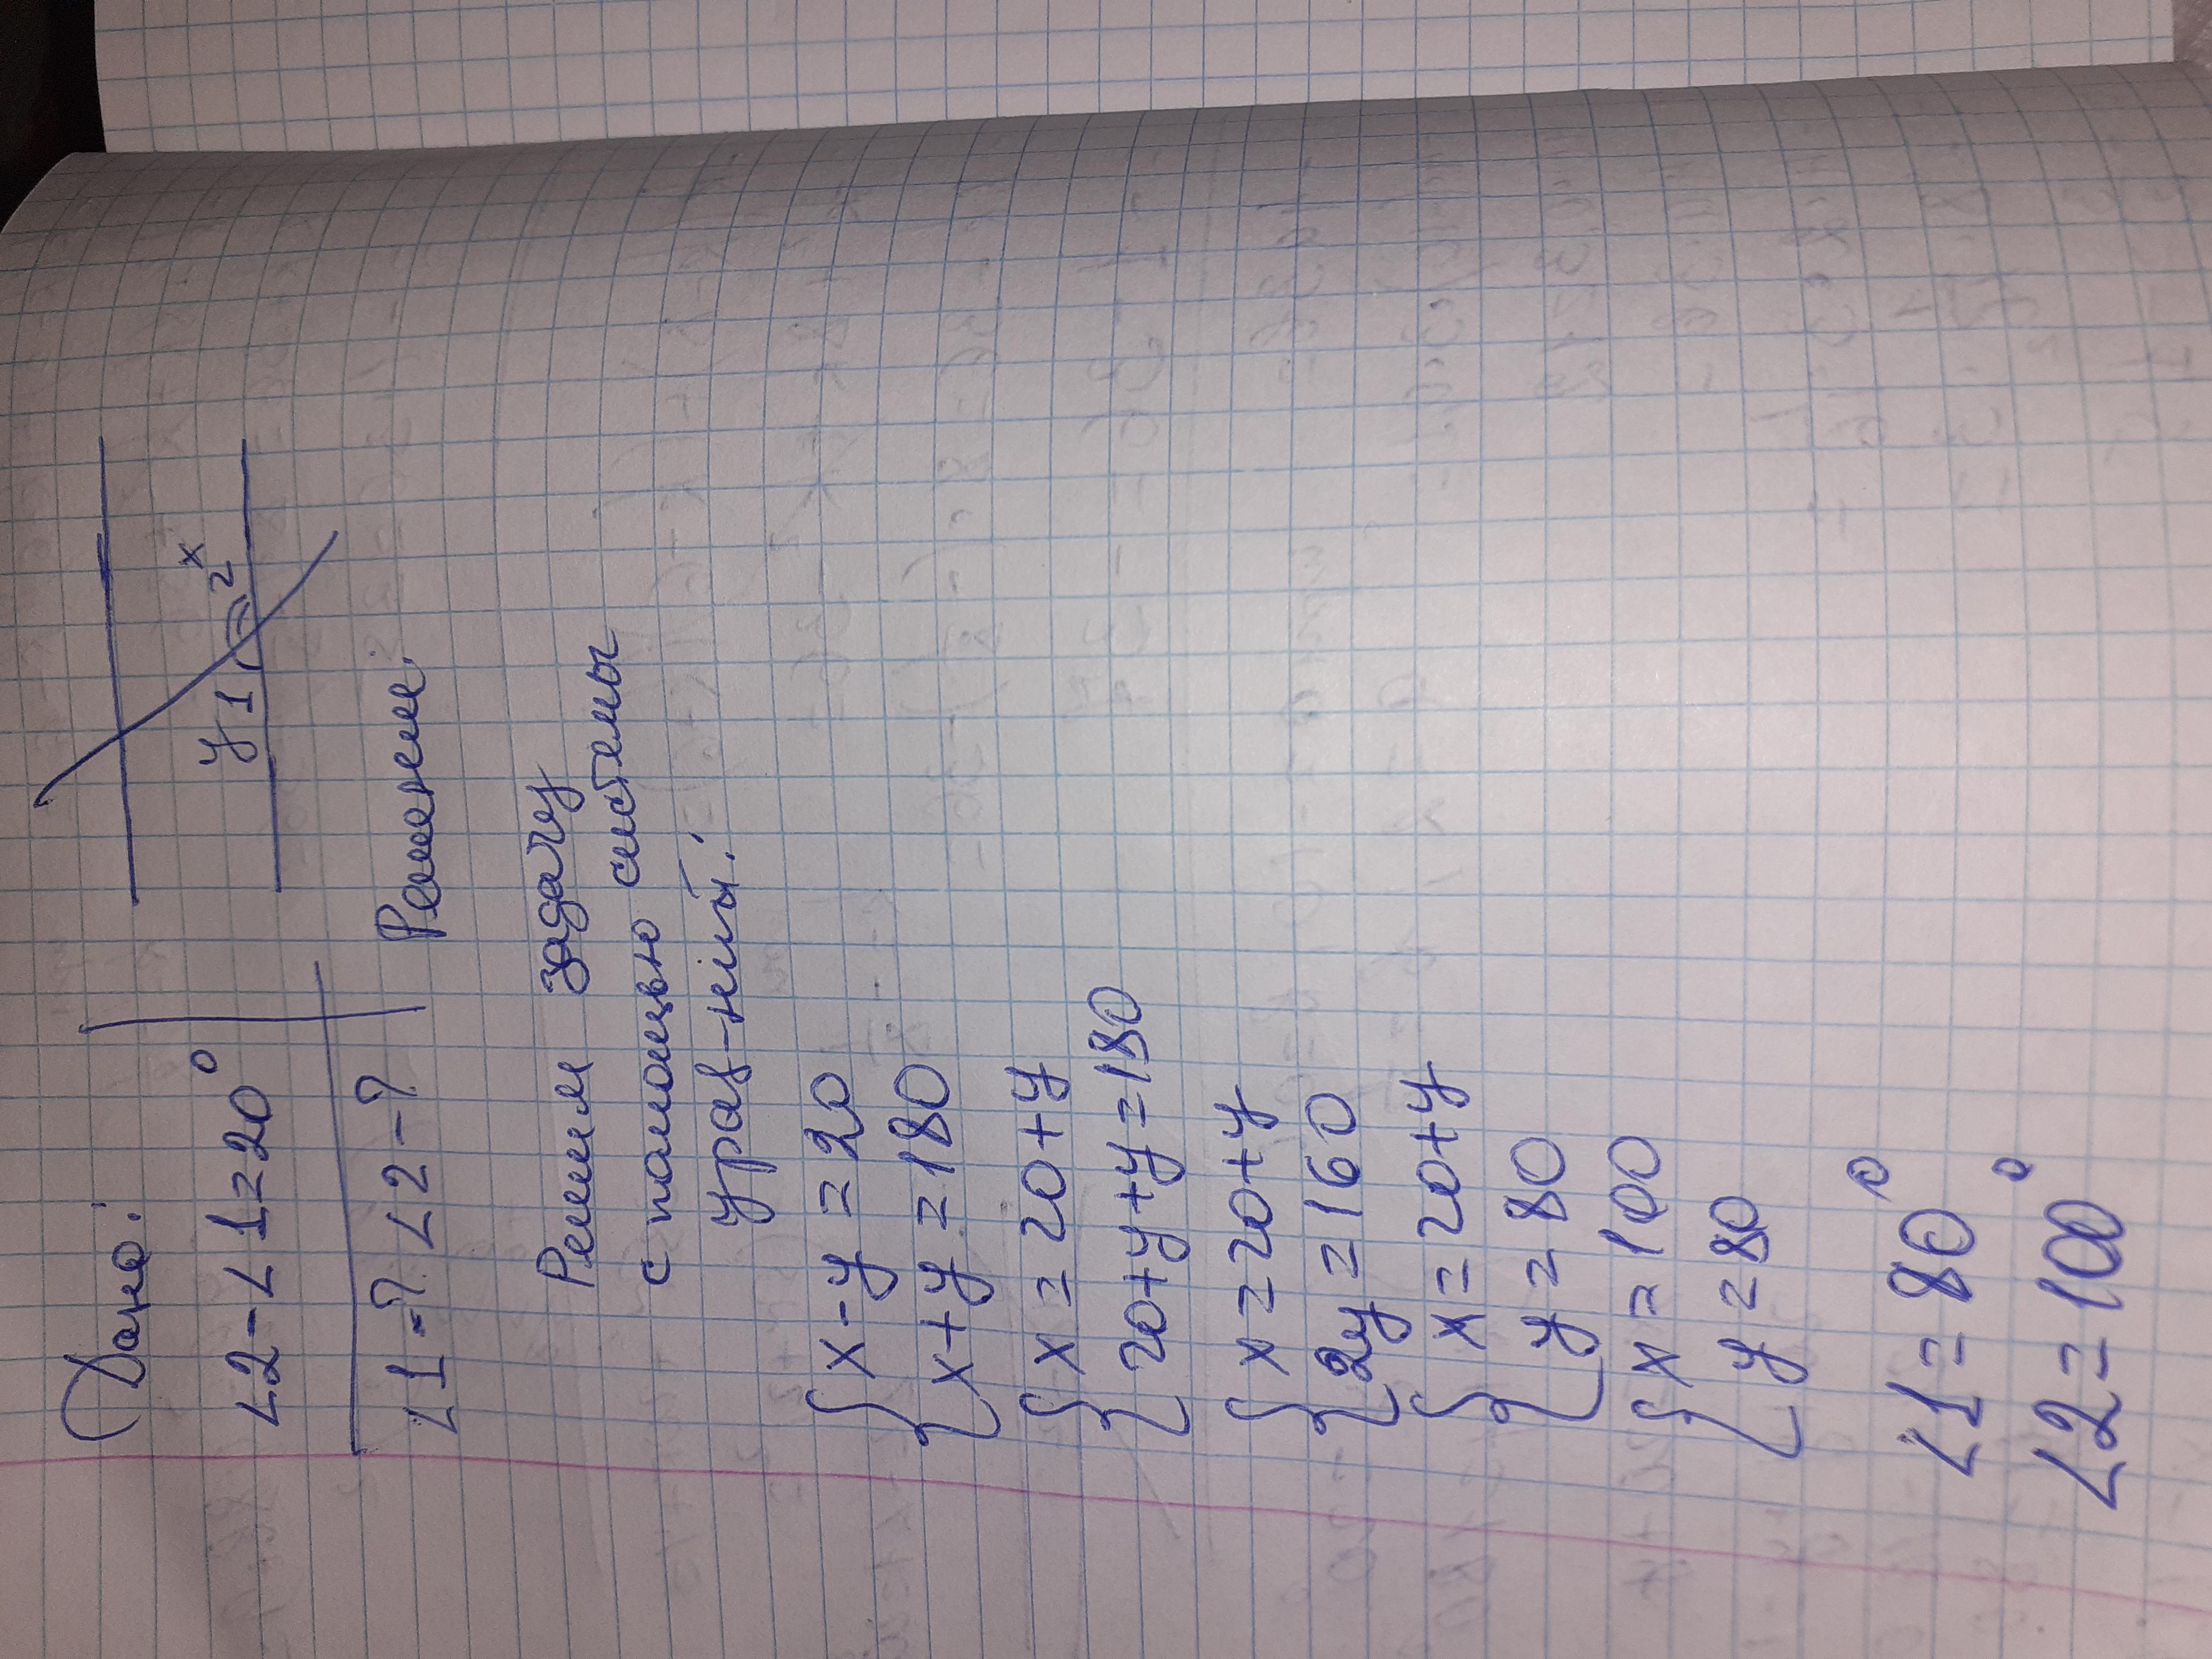 Дано:
∠2-∠1=20°
∠1-? ∠2-?
y 1 2 x
Решение:
Решим задачу
с помощью системы
урав-ний:
{x-y=20
x+y=180
{x=20+y
20+y+y=180
{x=20+y
2y=160
{x=20+y
y=80
{x=100
y=80
∠1=80°
∠2=100°